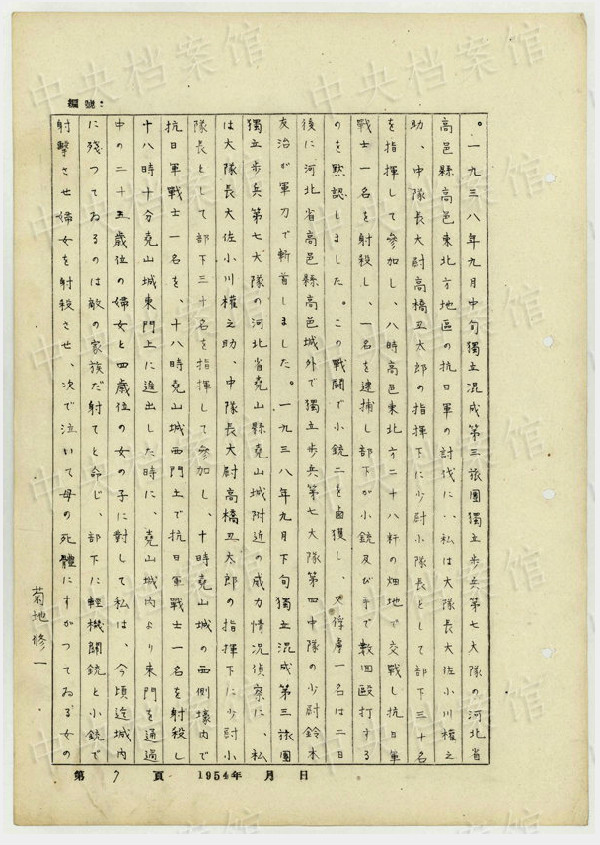 編號:
。一九三八年九月中旬獨立混成第三旅團獨立步兵第七大隊の河北省
高邑縣高邑東北方地區の抗日軍の討伐に、私は大隊長大佐小川權之
助、中隊長大尉高橋丑太郎の指揮下に少尉小隊長として部下三十名
を指揮して參加し、八時高邑東北方二十八粁の畑地で交戰し抗日軍
戰士一名を射殺し、一名を逮捕し部下が小銃及び手で數回毆打する
のを默認しました。この戰鬪で小銃二を鹵獲し、又俘虜一名は二日
後に河北省高邑縣高邑城外で獨立步兵第七大隊第四中隊の少尉鈴木
友治が軍刀で斬首しました。一九三八年九月下旬獨立混成第三旅團
獨立步兵第七大隊の河北省堯山縣堯山城附近の威力情況偵察に、私
は大隊長大佐小川權之助、中隊長大尉高橋丑太郎の指揮下に少尉小
隊長として部下三十名を指揮して參加し、十時堯山城の西側壕內で
抗日軍戰士一名を、十八時堯山城西門上で抗日軍戰士一名を射殺し
十八時十分堯山城東門上に進出した時に、堯山城內より東門を通過
中の二十五歲位の婦女と四歲位の女の子に對して私は、今頃迄城內
に殘つてゐるのは敵の家族だ射てと命じ、部下に輕機關銃と小銃で
射擊させ婦女を射殺させ、次で泣いて母の死體にすがつてゐる女の
菊地修一
第 7 頁 1954年 月 日
中央档案馆